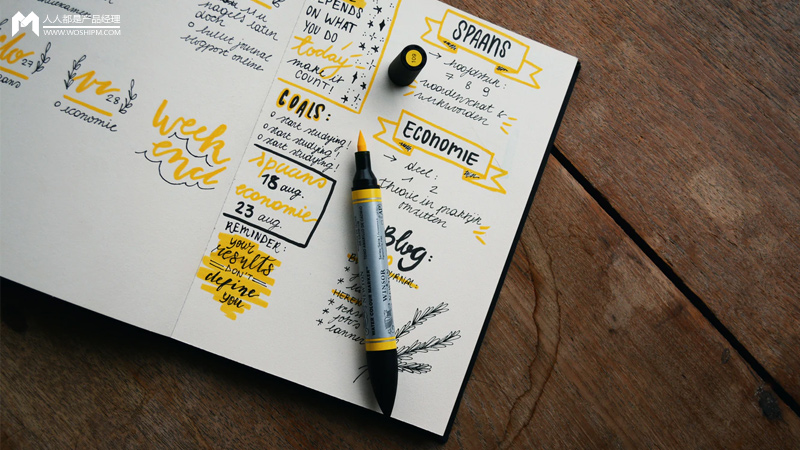 人人都是产品经理
WWW.WOSHIPM.COM
nagels laten
doch
o bullet journal
blogpost online
29
28
o economie
week
end
DEPENDS
ON WHAT
YOU DO!
today!
make it
COUNT!
GOALS:
o start studying!
o start studying!
o start studying!
spaans
18 aug.
economie
23 aug.
REMINDER:
your
results
DON'T
define
you
109
SPAANS
→ hoofdstuk:
7 8 9
woordenschat &
werkwoorden
ECONOMIE
→ deel:
1 2
theorie in
omzetten
Blog:
WINSOR
WATER COLOUR MARKER